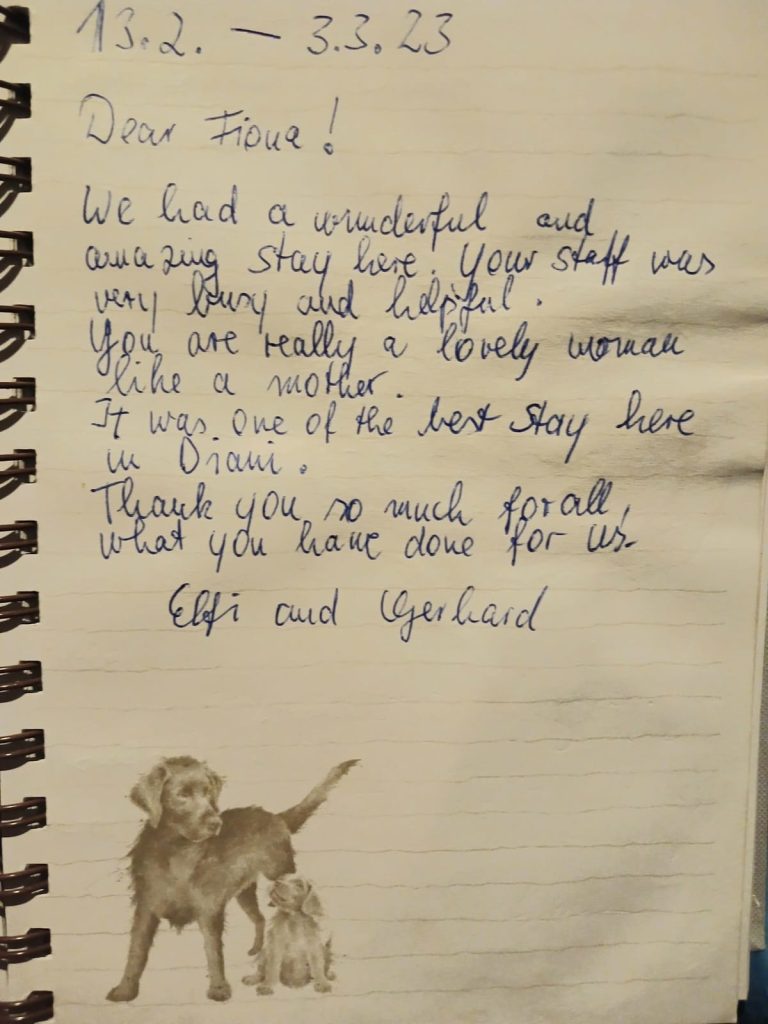 13.2. — 3.3.23
Dear Fiona!
We had a wunderful and
amazing stay here. Your staff was
very busy and helpful.
You are really a lovely woman
like a mother.
It was one of the best stay here
in Diani.
Thank you so much for all,
what you have done for us.
Elfi and Gerhard